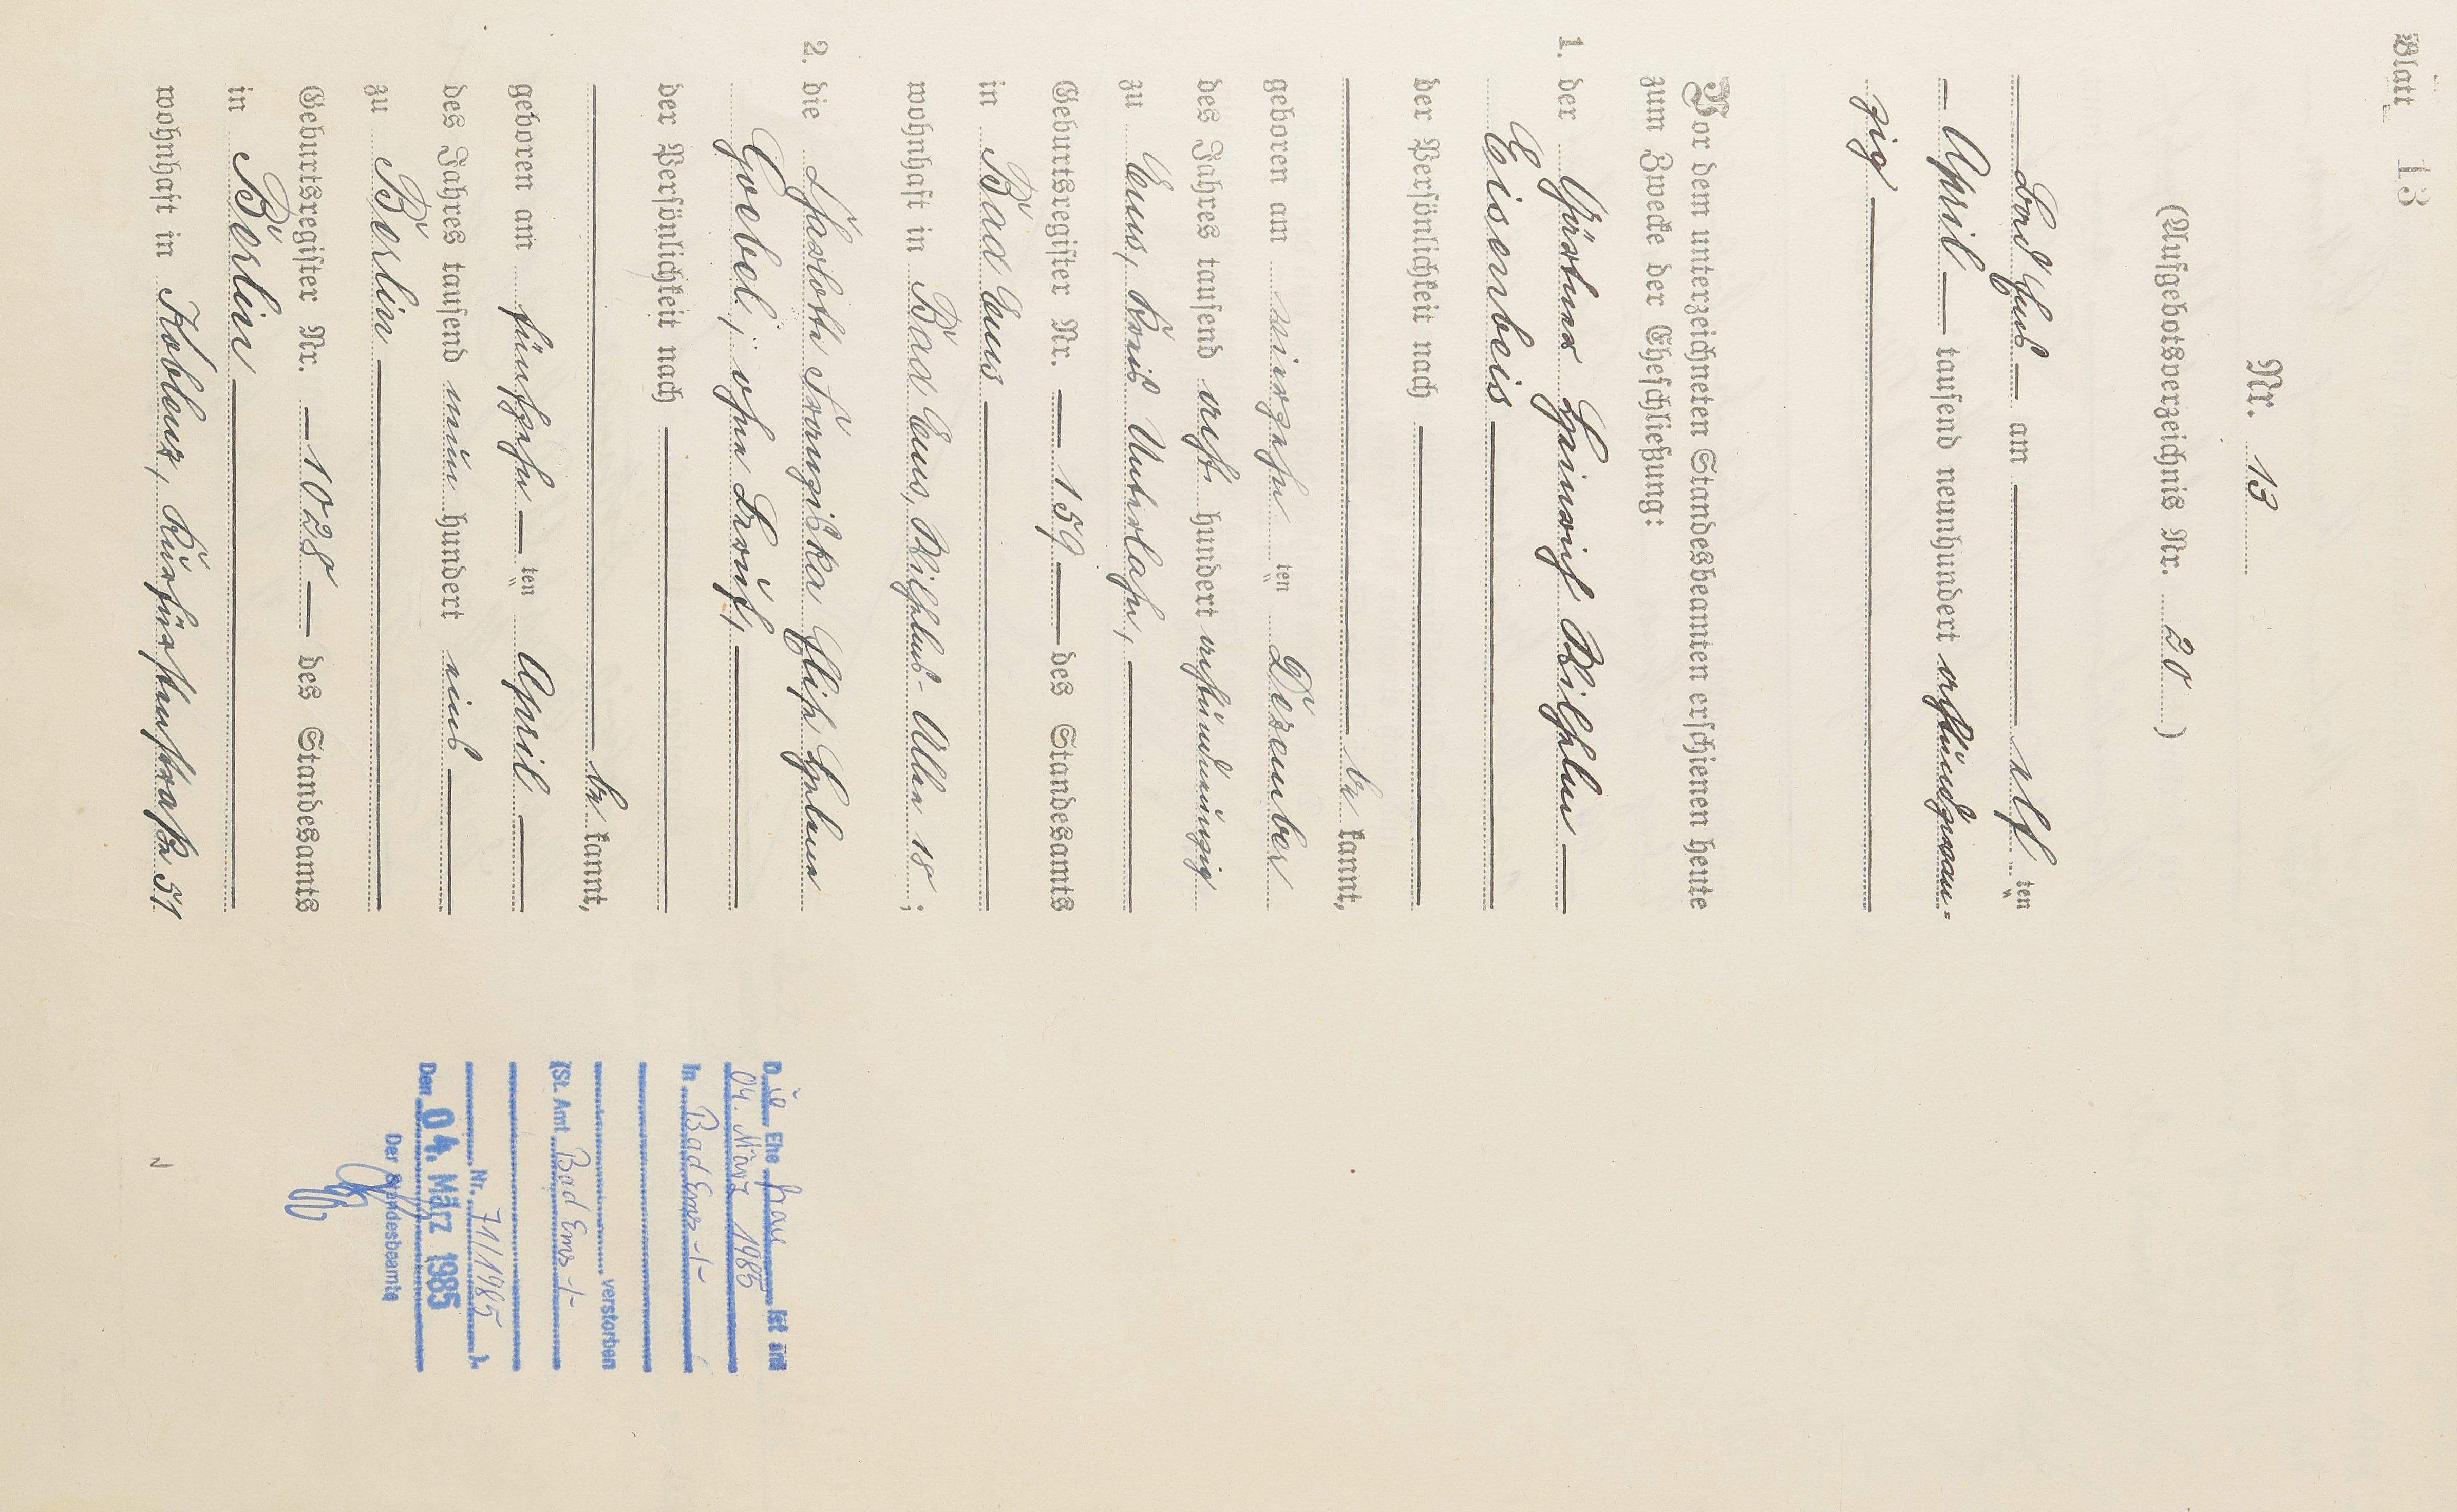 Blatt 13
Nr. 13
(Aufgebotsverzeichnis Nr. 20)
Bad Ems — am — elf ten
— April — tausend neunhundert achtundzwan-
zig —
Vor dem unterzeichneten Standesbeamten erschienen heute
zum Zwecke der Eheschließung:
1. der Gärtner Heinrich Wilhelm —
Eisenbeis —
der Persönlichkeit nach —
— be kannt,
geboren am vierzehn ten Dezember
des Jahres tausend acht hundert achtundneunzig
zu Ems, Kreis Unterlahn, —
Geburtsregister Nr. — 159 — des Standesamts
in Bad Ems —
wohnhaft in Bad Ems, Wilhelms-Allee 18;
2. die Charlotte Franziska Elise Helene
Goebel, ohne Beruf, —
der Persönlichkeit nach —
— be kannt,
geboren am fünfzehn — ten April —
des Jahres tausend neun hundert eins —
zu Berlin —
Geburtsregister Nr. — 1028 — des Standesamts
in Berlin —
wohnhaft in Koblenz, Kurfürstenstraße 51
Die Ehefrau ist am
04. März 1985
in Bad Ems -/-
verstorben
(St. Amt Bad Ems -/-
Nr. 71/1985 ).
Den 04. März 1985
Der Standesbeamte